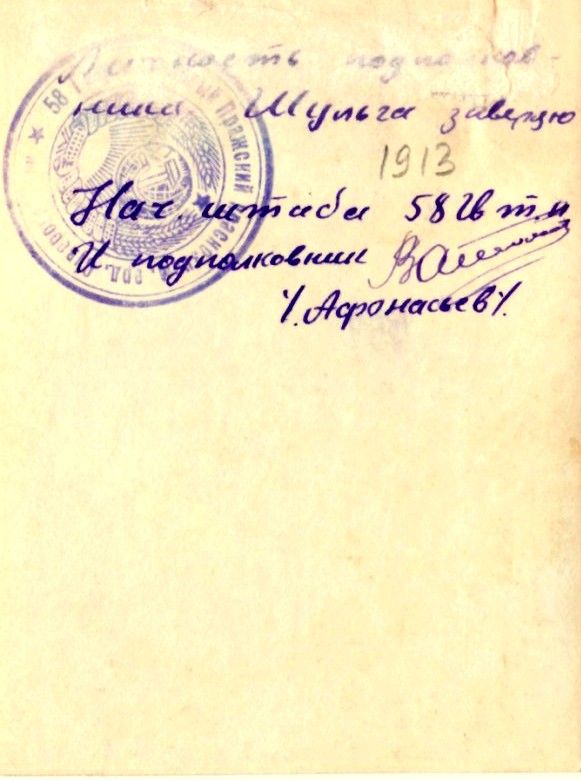 Личность подполков-
ника Шульга заверяю
1913
Нач. штаба 58 Гв т п
подполковник
/. Афонасьев/.
58
Пражский